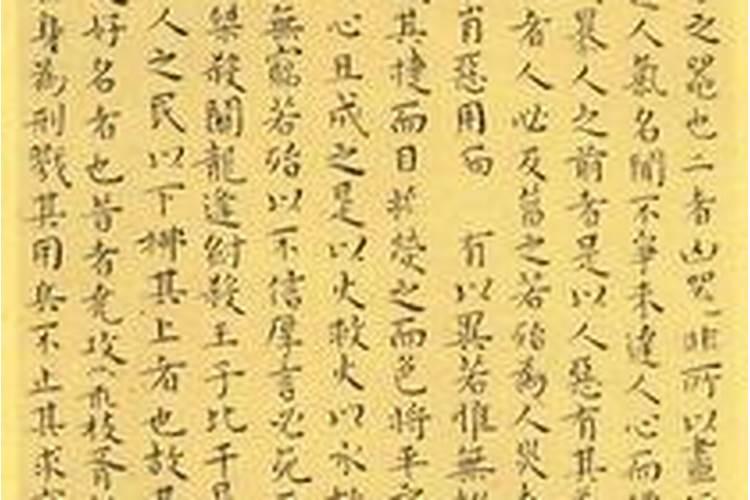 之器也二者凶器非所以盡
人氣名聞不爭未達人心而
暴人之前者是以人惡有其
者人必反菑之若殆為人災
肖惡用而 有以異若惟無
其捷而目將熒之而色將平
心且成之是以火救火以水
無窮若殆以不信厚言必死
桀殺關龍逢紂殺王子比干是
人之民以下拂其上者也故其
好名者也昔者堯攻叢枝胥
身為刑戮其用兵不止其求